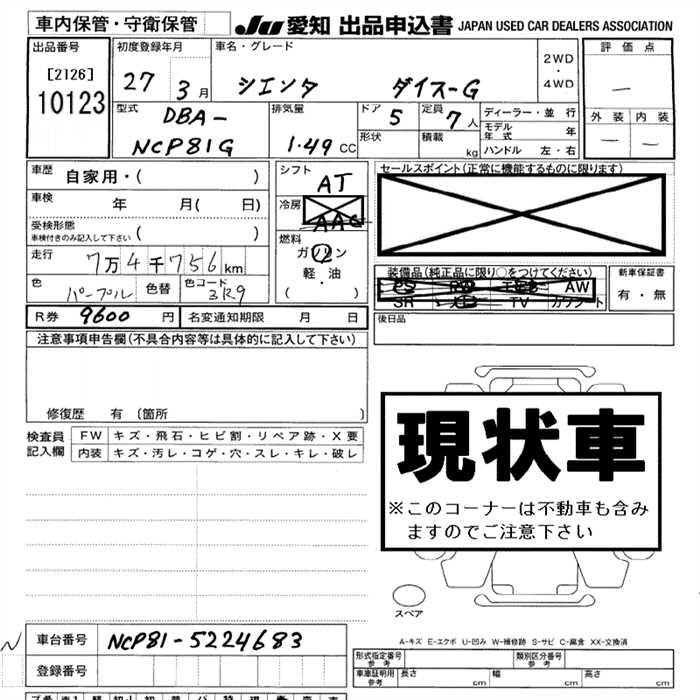 車内保管・守衛保管 JU 愛知 出品申込書 JAPAN USED CAR DEALERS ASSOCIATION
出品番号 初度登録年月 車名・グレード 2WD・4WD 評価点
[2126] 27 3月 シエンタ ダイス-G —
10123 型式 排気量 ドア 5 定員 7人 ディーラー・並行 外装 内装
DBA- 形状 積載 kg モデル年式 年 — —
NCP81G 1.49 CC ハンドル 左・右
車歴 自家用・( ) シフト AT セールスポイント(正常に機能するものに限ります)
車検 年 月( 日) 冷房 AAC
受検形態 ( )
車検付きのみ記入して下さい
燃料 ガソリン
走行 7万4千756km 軽・油
( ・ )
装備品(純正品に限り○をつけてください) 新車保証書
色 パープル 色替 色コード 3R9 AW 有・無
SR TV カワシート
R券 9600円 名変通知期限 月 日 後日品
注意事項申告欄(不具合内容等は具体的に記入して下さい)
修復歴 有 〔箇所 〕
検査員 FW キズ・飛石・ヒビ割・リペア跡・X要
記入欄 内装 キズ・汚レ・コゲ・穴・スレ・キレ・破レ
現状車
※このコーナーは不動車も含み
ますのでご注意下さい
スペア
A-キズ E-エクボ U-凹み W-補修跡 S-サビ C-腐食 XX-交換済
車台番号 NCP81-5224683
形式指定番号 参考 類別区分番号 参考
登録番号 車庫証明用 参考 長さ cm 幅 cm 高さ cm